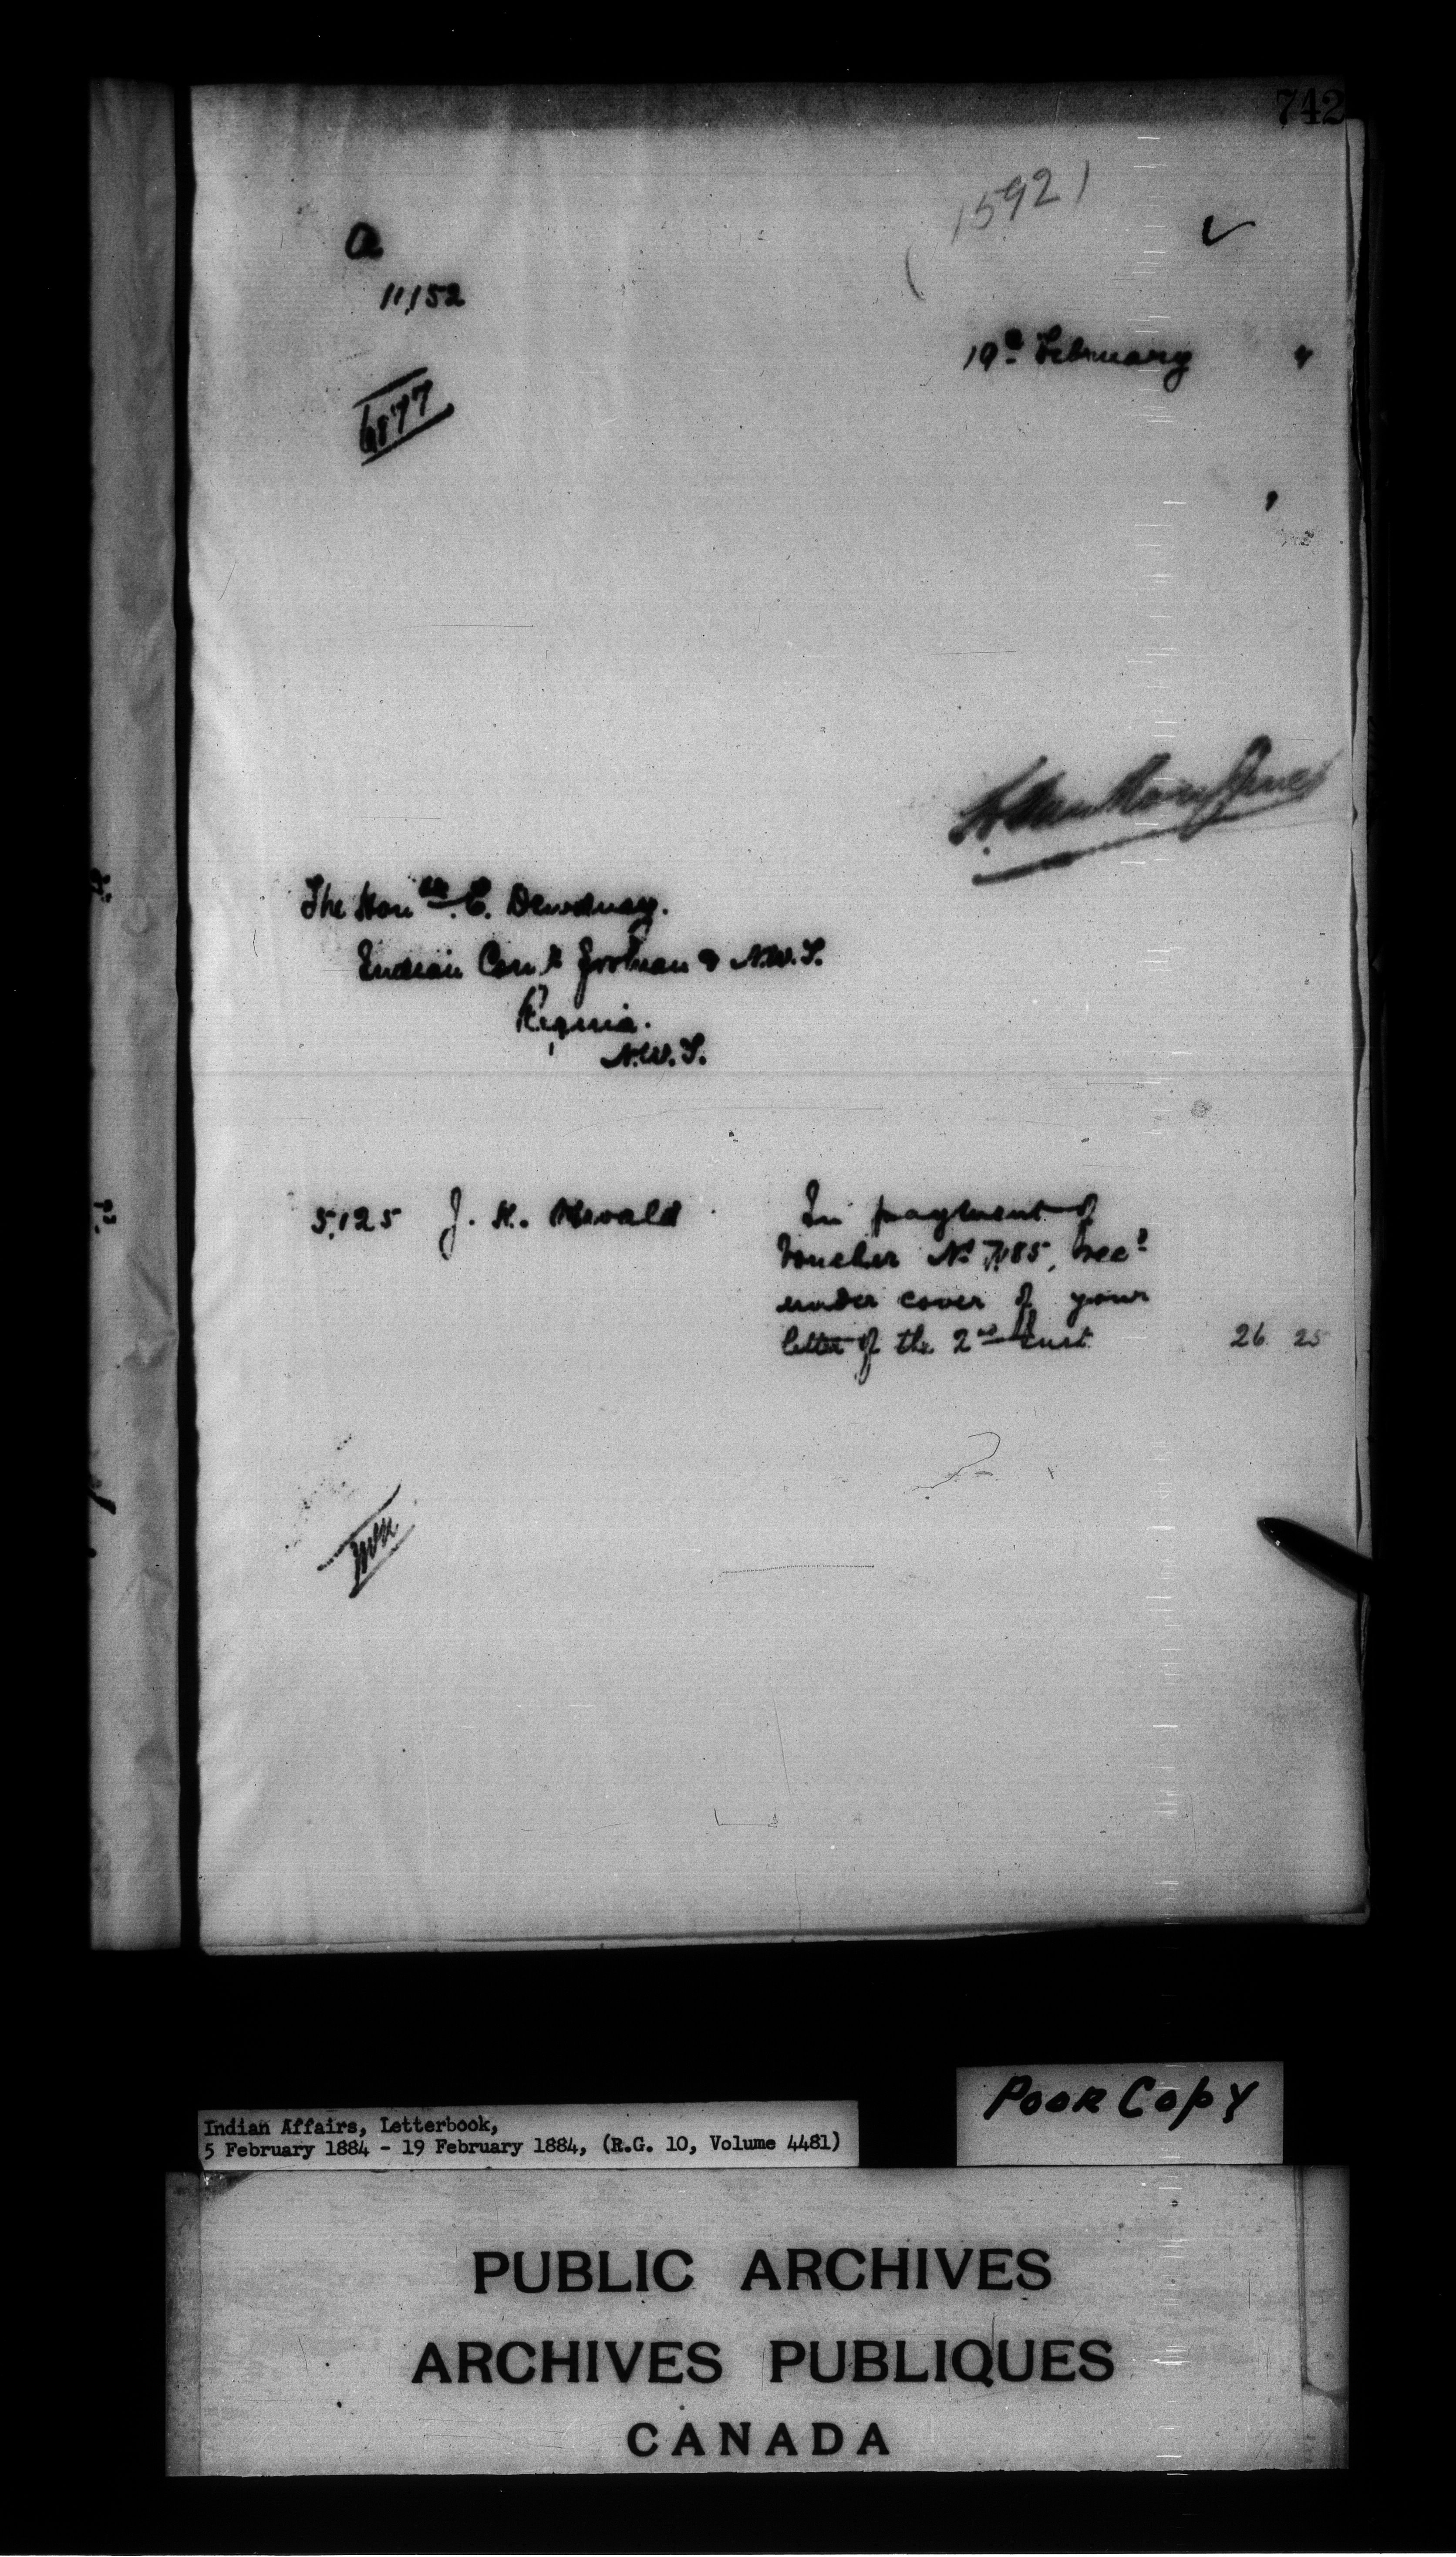 742
15921
a
11,152
19th February 4
6877
The Honble E. Dewdney.
Indian Comr Keewatin & N.W.T.
Regina.
N.W.T.
5,125 J. K. Oswald In payment of
Voucher No 7,185, Recd
under cover of your
letter of the 2nd Inst 26 25
Indian Affairs, Letterbook,
5 February 1884 - 19 February 1884, (R.G. 10, Volume 4481)
POOR COPY
PUBLIC ARCHIVES
ARCHIVES PUBLIQUES
CANADA